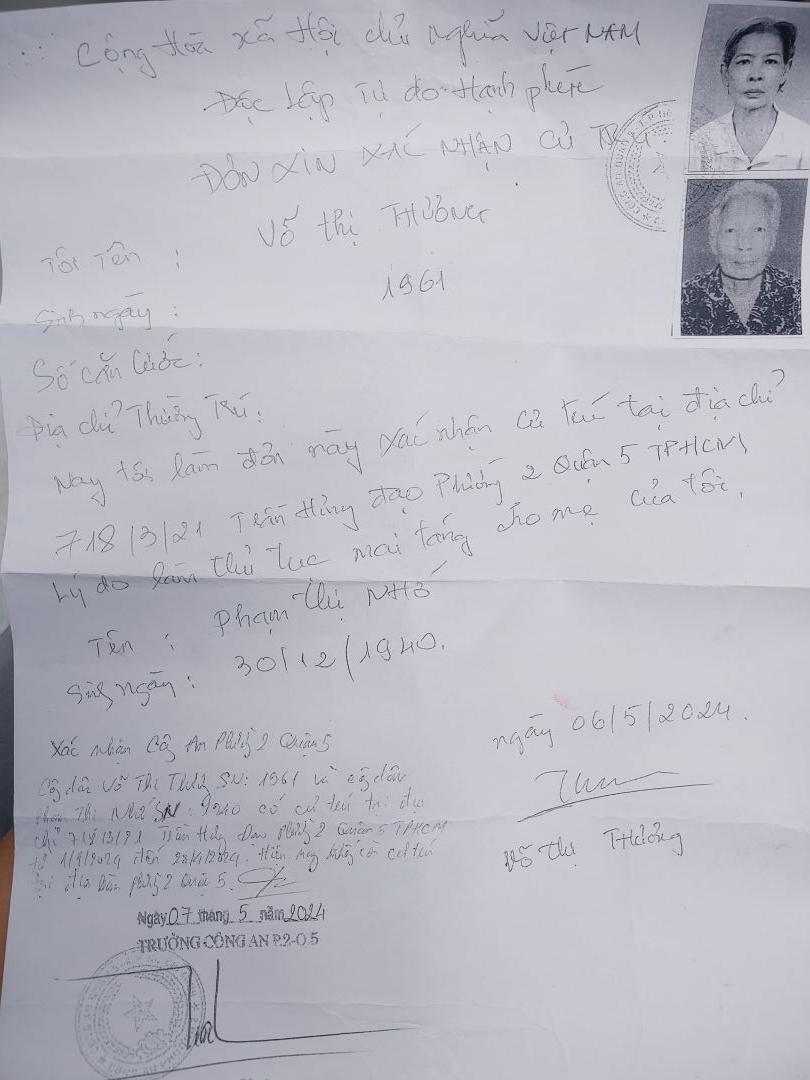 Cộng Hòa xã Hội chủ nghĩa Việt NAM
Độc Lập Tự do Hạnh phúc
ĐƠN XIN XÁC NHẬN CƯ TRÚ
Tôi Tên : Võ thị THƯƠNG
Sinh ngày : 1961
Số căn Cước :
Địa chỉ Thường Trú :
Nay tôi làm đơn này xác nhận cư trú tại địa chỉ
718/3/21 Trần Hưng đạo Phường 2 Quận 5 TPHCM
Lý do làm thủ tục mai táng cho mẹ của tôi.
Tên : phạm thị NHỚ
Sinh ngày : 30/12/1940.
ngày 06/5/2024.
Võ thị THƯƠNG
Xác nhận Công An Phường 2 Quận 5
Công dân Võ Thị Thương SN: 1961 và công dân
Phạm Thị Nhớ SN: 1940 có cư trú tại địa
chỉ 718/3/21 Trần Hưng Đạo Phường 2 Quận 5 TPHCM
từ đến Hiện nay không còn cư trú
tại địa bàn phường 2 Quận 5.
Ngày 07 tháng 5 năm 2024
TRƯỞNG CÔNG AN P.2-Q.5